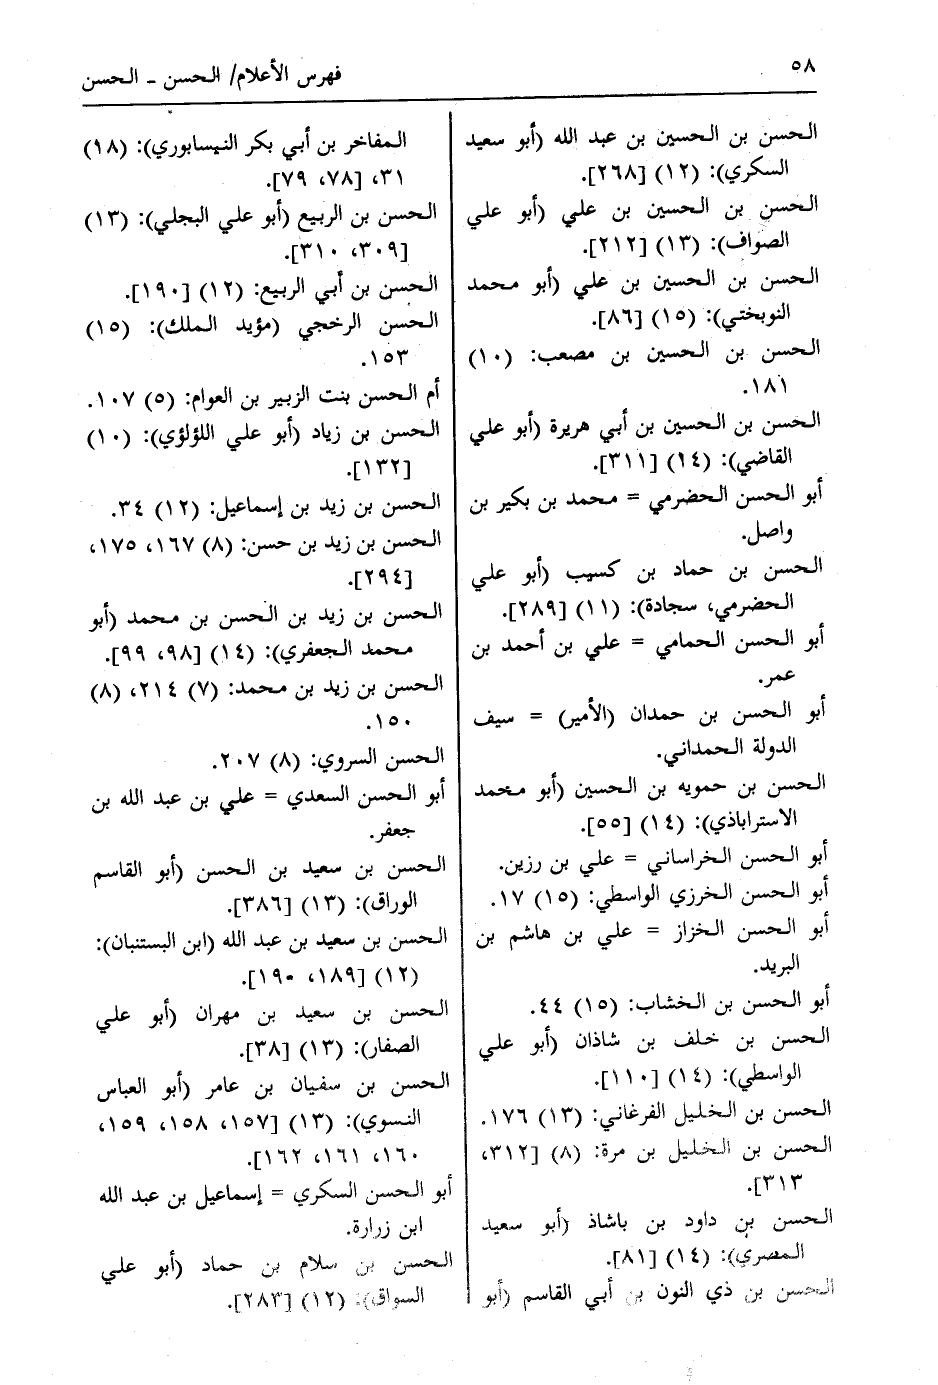 ٥٨
فهرس الأعلام/ الحسن ـ الحسن
الحسن بن الحسين بن عبد الله (أبو سعيد
السكري): (١٢) [٢٦٨].
الحسن بن الحسين بن علي (أبو علي
الصواف): (١٣) [٢١٢].
الحسن بن الحسين بن علي (أبو محمد
النوبختي): (١٥) [٨٦].
الحسن بن الحسين بن مصعب: (١٠)
١٨١.
الحسن بن الحسين بن أبي هريرة (أبو علي
القاضي): (١٤) [٣١١].
أبو الحسن الحضرمي = محمد بن بكير بن
واصل.
الحسن بن حماد بن كسيب (أبو علي
الحضرمي، سجادة): (١١) [٢٨٩].
أبو الحسن الحمامي = علي بن أحمد بن
عمر.
أبو الحسن بن حمدان (الأمير) = سيف
الدولة الحمداني.
الحسن بن حمويه بن الحسين (أبو محمد
الاستراباذي): (١٤) [٥٥].
أبو الحسن الخراساني = علي بن رزين.
أبو الحسن الخرزي الواسطي: (١٥) ١٧.
أبو الحسن الخزاز = علي بن هاشم بن
البريد.
أبو الحسن بن الخشاب: (١٥) ٤٤.
الحسن بن خلف بن شاذان (أبو علي
الواسطي): (١٤) [١١٠].
الحسن بن الخليل الفرغاني: (١٣) ١٧٦.
الحسن بن الخليل بن مرة: (٨) [٣١٢،
٣١٣].
الحسن بن داود بن باشاذ (أبو سعيد
المصري): (١٤) [٨١].
الحسن بن ذي النون بن أبي القاسم (أبو
المفاخر بن أبي بكر النيسابوري): (١٨)
٣١، [٧٨، ٧٩].
الحسن بن الربيع (أبو علي البجلي): (١٣)
[٣٠٩، ٣١٠].
الحسن بن أبي الربيع: (١٢) [١٩٠].
الحسن الرخجي (مؤيد الملك): (١٥)
١٥٣.
أم الحسن بنت الزبير بن العوام: (٥) ١٠٧.
الحسن بن زياد (أبو علي اللؤلؤي): (١٠)
[١٣٢].
الحسن بن زيد بن إسماعيل: (١٢) ٣٤.
الحسن بن زيد بن حسن: (٨) ١٦٧، ١٧٥،
[٢٩٤].
الحسن بن زيد بن الحسن بن محمد (أبو
محمد الجعفري): (١٤) [٩٨، ٩٩].
الحسن بن زيد بن محمد: (٧) ٢١٤، (٨)
١٥٠.
الحسن السروي: (٨) ٢٠٧.
أبو الحسن السعدي = علي بن عبد الله بن
جعفر.
الحسن بن سعيد بن الحسن (أبو القاسم
الوراق): (١٣) [٣٨٦].
الحسن بن سعيد بن عبد الله (ابن البستنبان):
(١٢) [١٨٩، ١٩٠].
الحسن بن سعيد بن مهران (أبو علي
الصفار): (١٣) [٣٨].
الحسن بن سفيان بن عامر (أبو العباس
النسوي): (١٣) [١٥٧، ١٥٨، ١٥٩،
١٦٠، ١٦١، ١٦٢].
أبو الحسن السكري = إسماعيل بن عبد الله
ابن زرارة.
الحسن بن سلام بن حماد (أبو علي
السواق): (١٢) [٢٨٣].